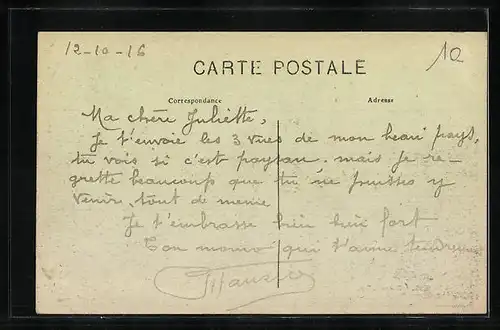 12-10-16
10
CARTE POSTALE
Correspondance
Adresse
Ma chère Juliette,
Je t'envoie les 3 vues de mon beau pays,
tu vois si c'est paysan. mais je re-
grette beaucoup que tu ne puisses y
venir, tout de meme
Je t'embrasse bien bien fort
Ton momo qui t'aime tendrement